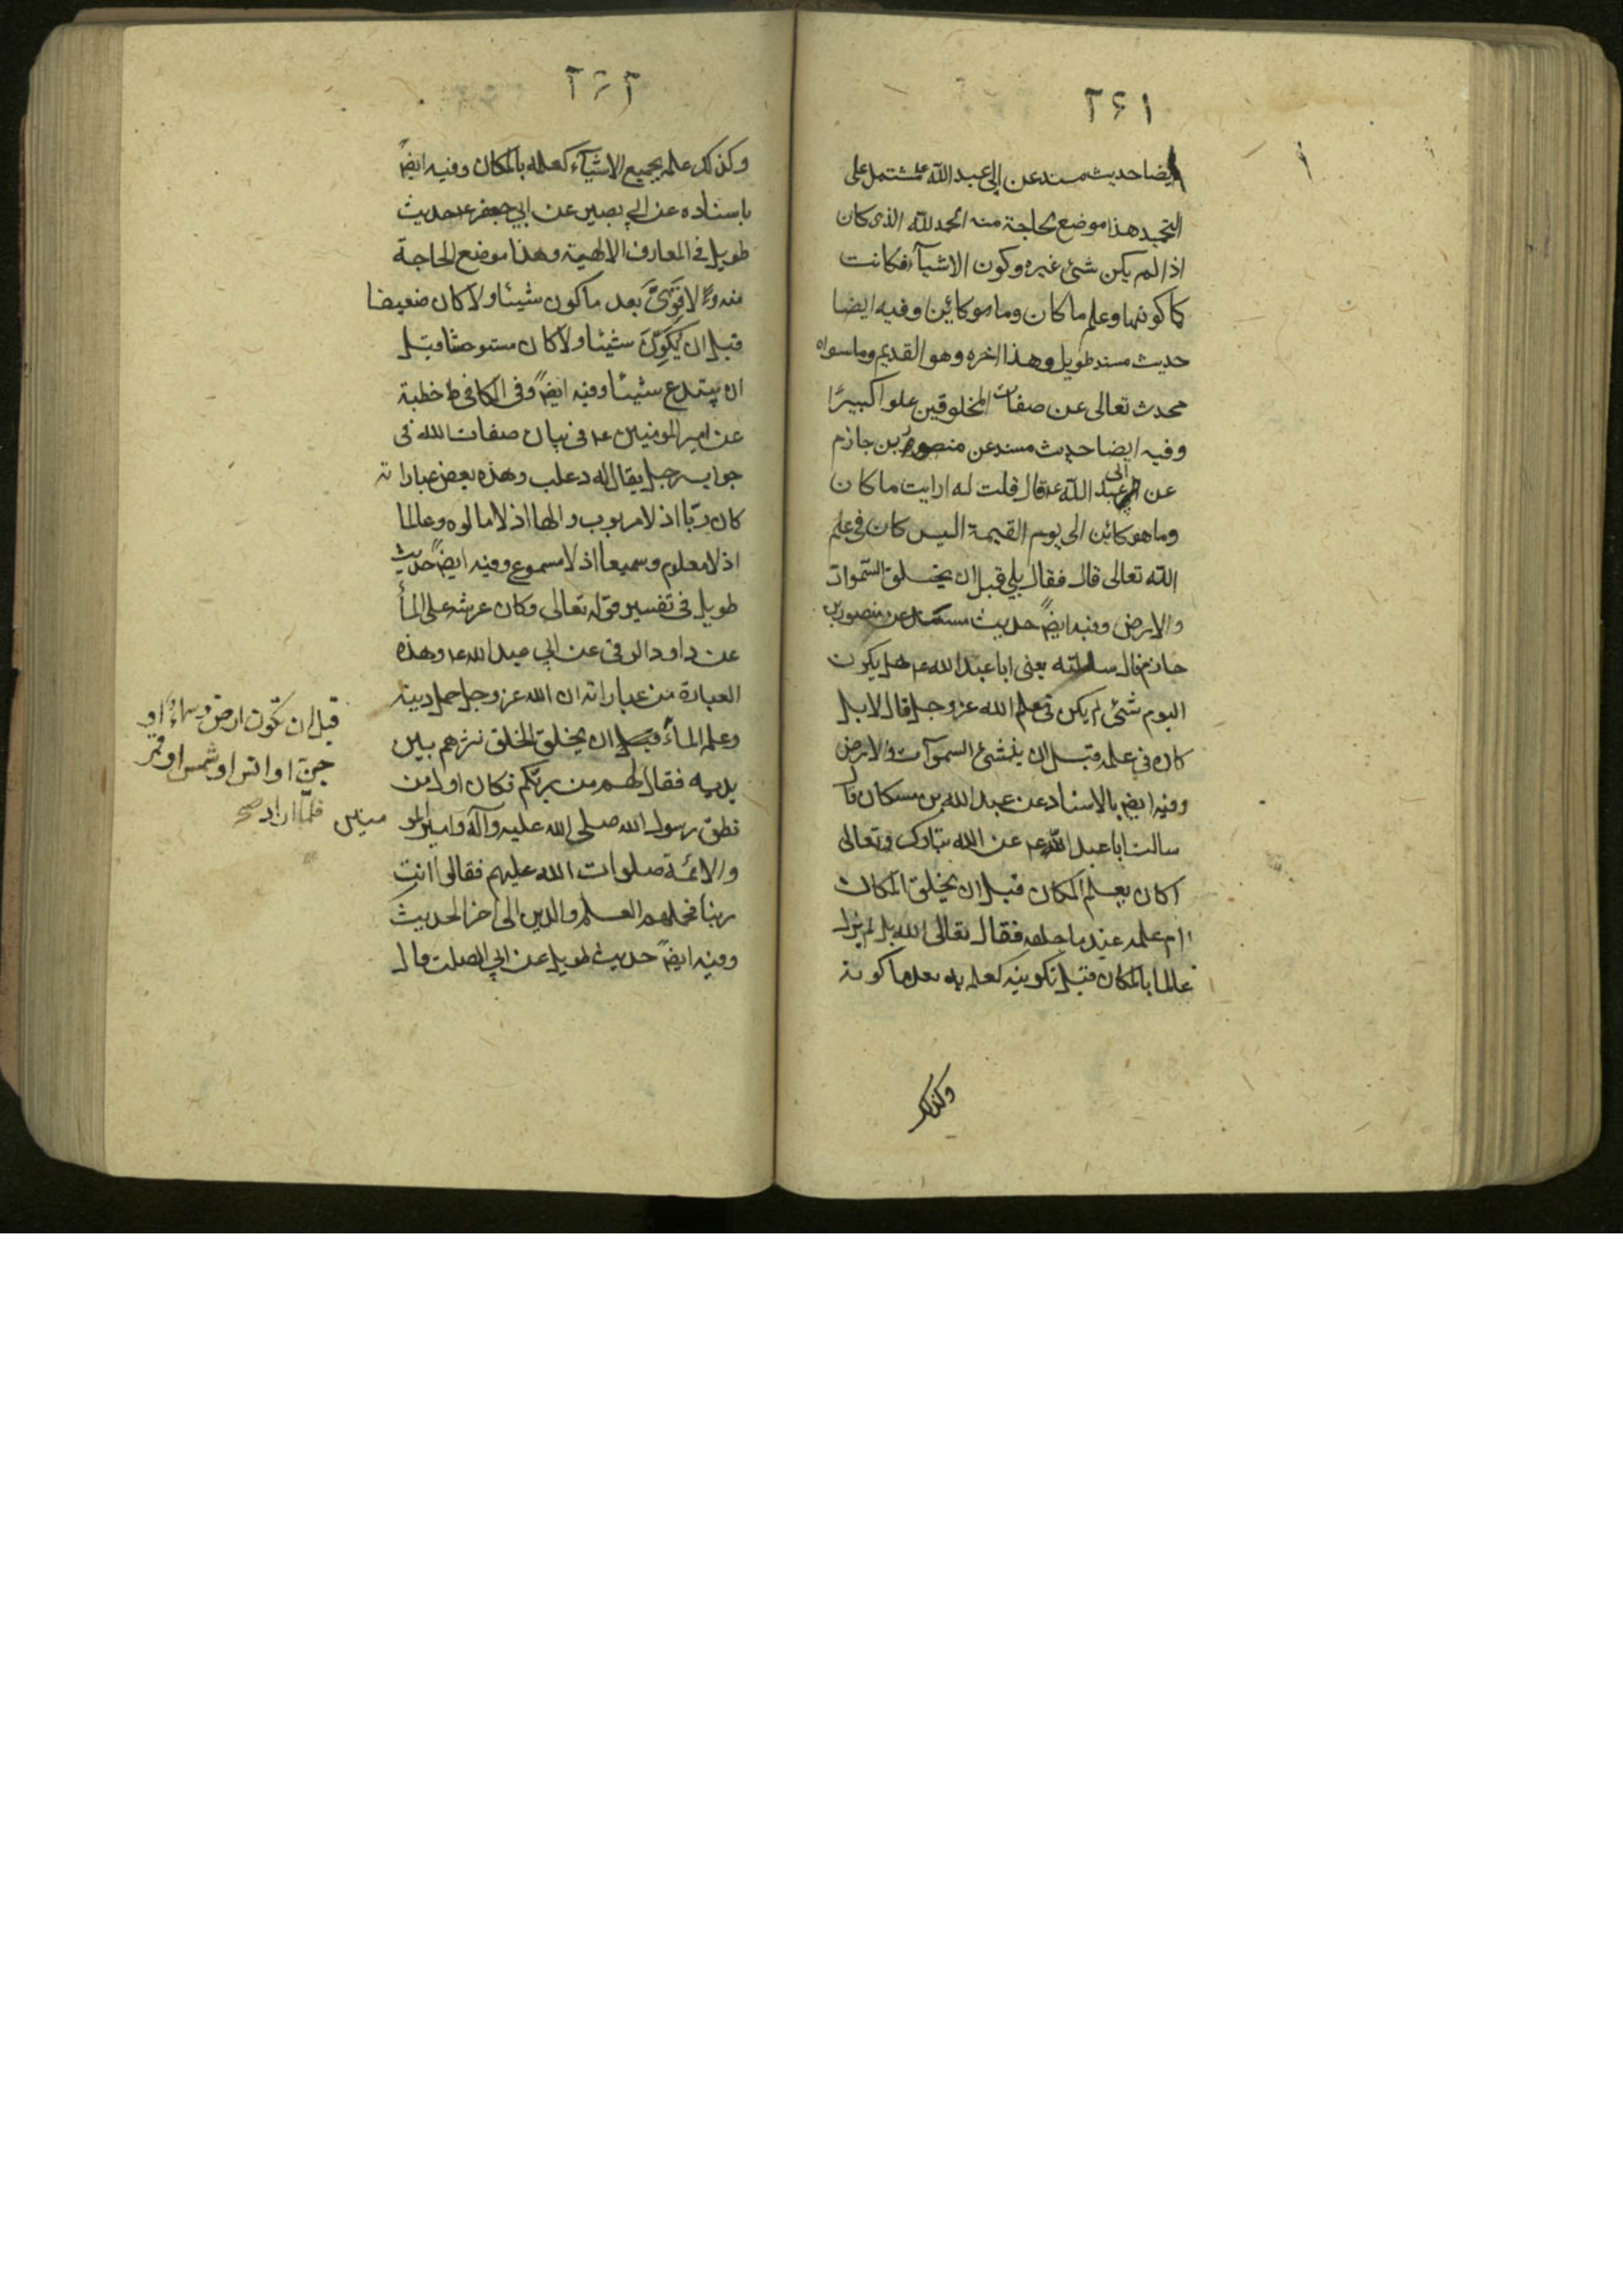 ٢۶١
ايضا حديث مسند عن ابى عبد الله ع مشتمل على
التحميد هذا موضع الحاجة منه الحمد لله الذى كان
اذا لم يكن شئ غيره وكون الاشيآء فكانت
كما كونها وعلم ما كان وما هو كائن وفيه ايضا
حديث مسند طويل وهذا اخره وهو القديم وما سواه
محدث تعالى عن صفات المخلوقين علوا كبيرًا
وفيه ايضا حديث مسند عن منصور بن حازم
عن ابى عبد الله ع قال قلت له ارايت ما كان
وما هو كائن الى يوم القيمة اليس كان فى علم
الله تعالى قال فقال بلى قبل ان يخلق السّموات
والارض وفيه ايضً حديث مسند عن منصور بن
حازم قال سالته يعنى ابا عبد الله ع هل يكون
اليوم شئ لم يكن فى علم الله عز وجل قال لا بل
كان فى علمه قبل ان ينشئ السموآت والارض
وفيه ايضً بالاسناد عن عبد الله بن مسكان قال
سالت ابا عبد الله ع عن الله تبارك وتعالى
اكان يعلم المكان قبل ان يخلق المكان
ام علمه عند ما خلقه فقال تعالى الله بل لم يزل
عالما بالمكان قبل تكوينه كعلمه به بعد ما كونه
وكذلك
٢۶٢
وكذلك علمه بجميع الاشيآء كعلمه بالمكان وفيه ايضً
باسناده عن ابى بصير عن ابى جعفر ع حديث
طويل فى المعارف الالهية وهذا موضع الحاجة
منه ولا قَوِىَ بعد ما كون شيئا ولا كان ضعيفا
قبل ان يُكَوِّنَ شيئا ولا كان مستوحشا قبل
ان يبتدع شيئا وفيه ايضً وفى الكافى خطبة
عن امير المومنين ع فى بيان صفات الله فى
جواب رجل يقال له دعلب وهذه بعض عباراته
كان ربّا اذ لا مربوب والها اذ لا مالوه وعالما
اذ لا معلوم وسميعا اذ لا مسموع وفيه ايضً حديث
طويل فى تفسير قوله تعالى وكان عرشه على المأ
عن داود الرقى عن ابى عبد الله ع وهذه
العبارة من عباراته ان الله عز وجل حمل دينه
وعلمه المأ قبل ان يخلق الخلق نثرهم بين
يديه فقال لهم من ربّكم فكان اول من
نطق رسول الله صلى الله عليه وآله وامير المو
منين
والائمة صلوات الله عليهم فقالوا انت
ربنا فحملهم العلم والدين الى اخر الحديث
وفيه ايضً حديث طويل عن ابى الصلت قال
قبل ان تكون ارض وسماء او
جنّ او انس او شمس او قمر
فلمّا اراد صح